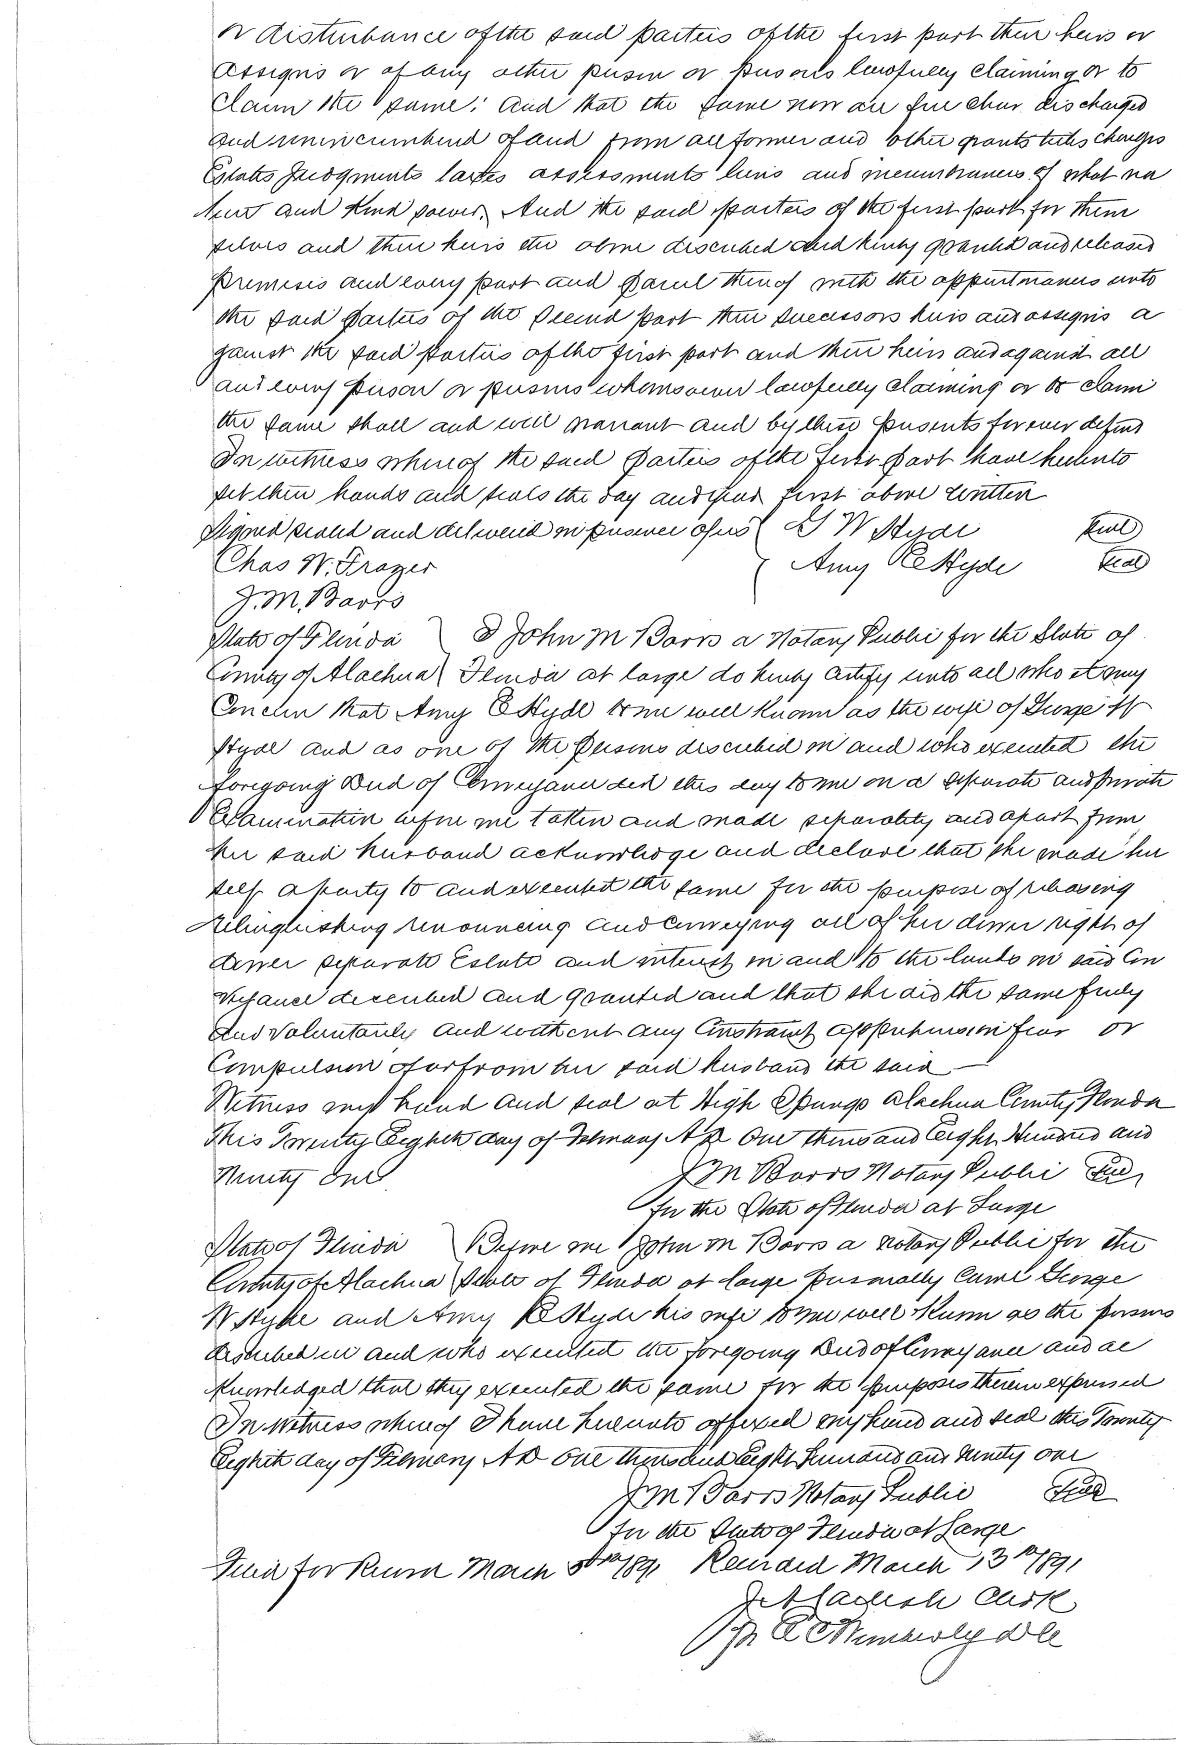 or disturbance of the said parties of the first part their heirs or
assigns or of any other person or persons lawfully claiming or to
claim the same; and that the same now are free clear discharged
and unincumbered of and from all former and other grants titles charges
Estates Judgments taxes assessments liens and incumbrances of what na
ture and kind soever. And the said parties of the first part for them
selves and their heirs the above described and hereby granted and released
premises and every part and parcel thereof with the appurtenances unto
the said parties of the second part their successors heirs and assigns a
gainst the said parties of the first part and their heirs and against all
and every person or persons whomsoever lawfully claiming or to claim
the same shall and will warrant and by these presents forever defend
In witness whereof the said parties of the first part have hereunto
set their hands and seals the day and year first above written
Signed sealed and delivered in presence of us G W Hyde Seal
Chas W. Frazer Amy E Hyde Seal
J. M. Barrs
State of Florida I John M Barrs a Notary Public for the State of
County of Alachua Florida at large do hereby certify unto all who it may
Concern that Amy E Hyde to me well known as the wife of George W
Hyde and as one of the persons described in and who executed the
foregoing Deed of Conveyance did this day to me on a separate and private
Examination before me taken and made separately and apart from
her said husband acknowledge and declare that she made her
self a party to and executed the same for the purpose of releasing
relinquishing renouncing and conveying all of her dower right of
dower separate Estate and interest in and to the lands in said Con
veyance described and granted and that she did the same freely
and voluntarily and without any Constraint apprehension fear or
Compulsion of or from her said husband the said
Witness my hand and seal at High Springs Alachua County Florida
this Twenty Eighth day of February A D One thousand Eight Hundred and
Ninety One J M Barrs Notary Public Seal
for the State of Florida at Large
State of Florida Before me John M Barrs a Notary Public for the
County of Alachua State of Florida at large personally came George
W Hyde and Amy E Hyde his wife to me well known as the persons
described in and who executed the foregoing Deed of Conveyance and ac
knowledged that they executed the same for the purposes therein expressed
In witness whereof I have hereunto affixed my hand and seal this Twenty
Eighth day of February A D One thousand Eight Hundred and Ninety one
J M Barrs Notary Public Seal
for the State of Florida at Large
Filed for Record March 1891 Recorded March 13th 1891
Clerk
E C Wimberly D C